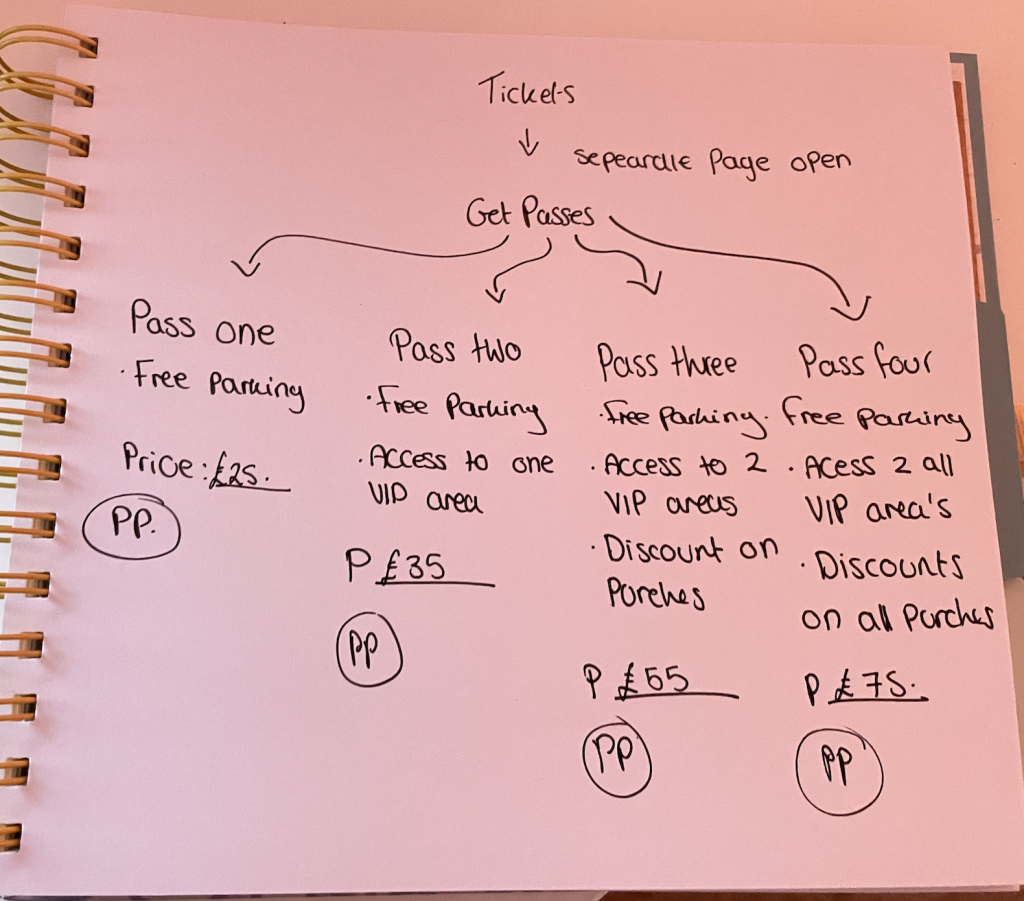 Tickets
sepeardle Page open
Get Passes
Pass one
· Free Parking
Price: £25.
PP.
Pass two
· Free Parking
· Access to one
VIP area
P £35
PP
Pass three
· Free Parking
· Access to 2
VIP areas
· Discount on
Porches
P £55
PP
Pass four
· Free Parking
· Acess 2 all
VIP area's
· Discounts
on all Porches
P £75.
PP